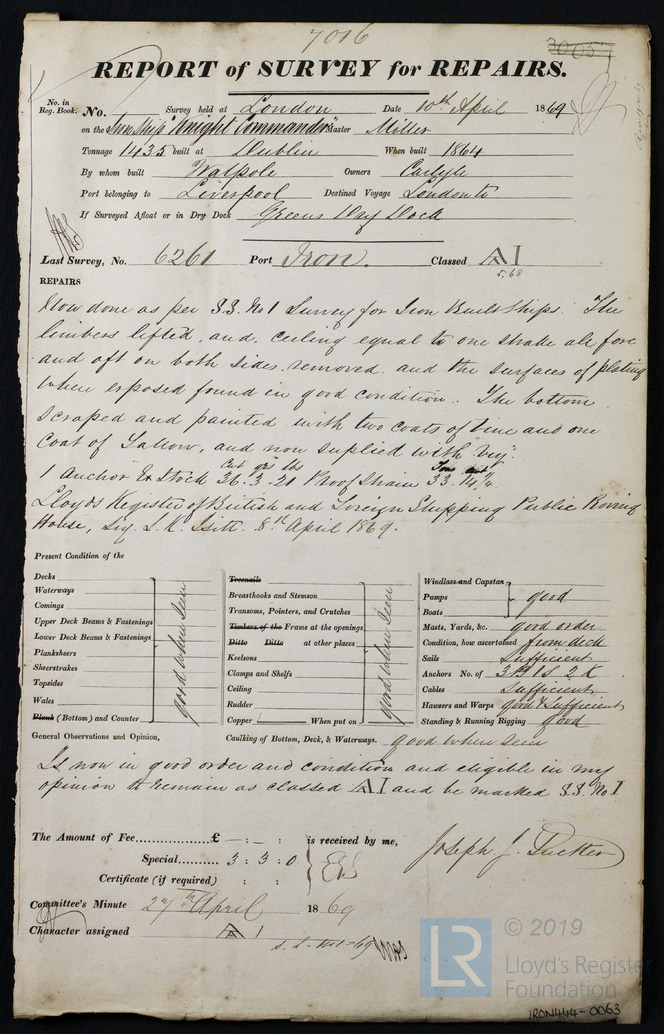 7016
20057
REPORT of SURVEY for REPAIRS.
No. in Reg. Book.
No. Survey held at London Date 10th April 1869
on the Iron Ship "Knight Commander" Master Miller
Tonnage 1435 built at Dublin When built 1864
By whom built Walpole Owners Carlyle
Port belonging to Liverpool Destined Voyage London to
If Surveyed Afloat or in Dry Dock Greens Dry Dock
Last Survey, No. 6261 Port Iron. Classed AI
5,68
REPAIRS
Now done as per S.S. No 1 Survey for Iron Built Ships. The
limbers lifted, and, ceiling equal to one strake all fore
and aft on both sides removed and the surfaces of plating
when exposed found in good condition. The bottom
scraped and painted with two coats of and one
coat of Tallow, and now suplied with viz:
Cwt qrs lbs Tons cwt
1 Anchor Ex Stock 36.3.21 Proof Strain 33.14/4
Lloyds Register of British and Foreign Shipping Public Proving
House, Sig. 8th April 1869.
Present Condition of the
Decks
Waterways
Comings
Upper Deck Beams & Fastenings
Lower Deck Beams & Fastenings
Planksheers
Sheerstrakes
Topsides
Wales
Plank (Bottom) and Counter
good when seen
Treenails
Breasthooks and Stemson
Transoms, Pointers, and Crutches
Timbers of the Frame at the openings
Ditto Ditto at other places
Keelsons
Clamps and Shelfs
Ceiling
Rudder
Copper When put on
good when seen
Windlass and Capstan
Pumps
Boats
good
Masts, Yards, &c. good order
Condition, how ascertained from deck
Sails Sufficient
Anchors No. of 3 B 1 S. 2 K
Cables Sufficient
Hausers and Warps good & Sufficient
Standing & Running Rigging good
General Observations and Opinion, Caulking of Bottom, Deck, & Waterways. good when seen
Is now in good order and condition and eligible in my
opinion to remain as classed AI and be marked S.S. No I
The Amount of Fee £ — : — : is received by me,
Special 3 : 3 : 0
Certificate (if required) : :
Joseph J. Tucker
Committee's Minute 27th April 1869
Character assigned A 1
LR
© 2019
Lloyd's Register
Foundation
IRON444-0063